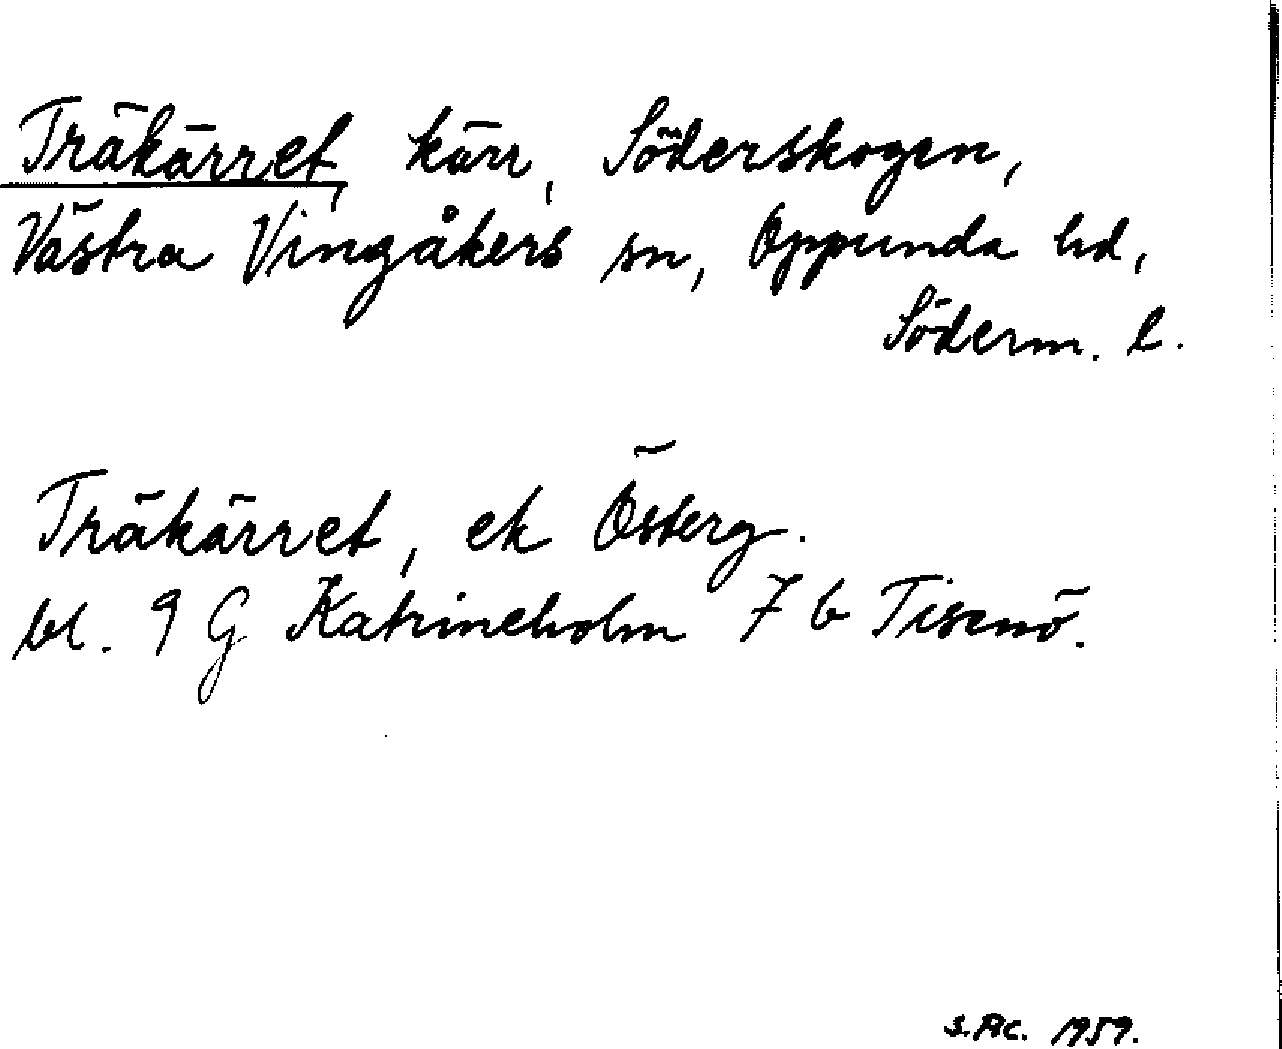 Träkärret, kärr, Söderskogen,
Västra Vingåkers sn, Oppunda hd,
Söderm. l.
Träkärret, ek Österg.
bl. 9 G Katrineholm 7 b Tisenö.
1959.